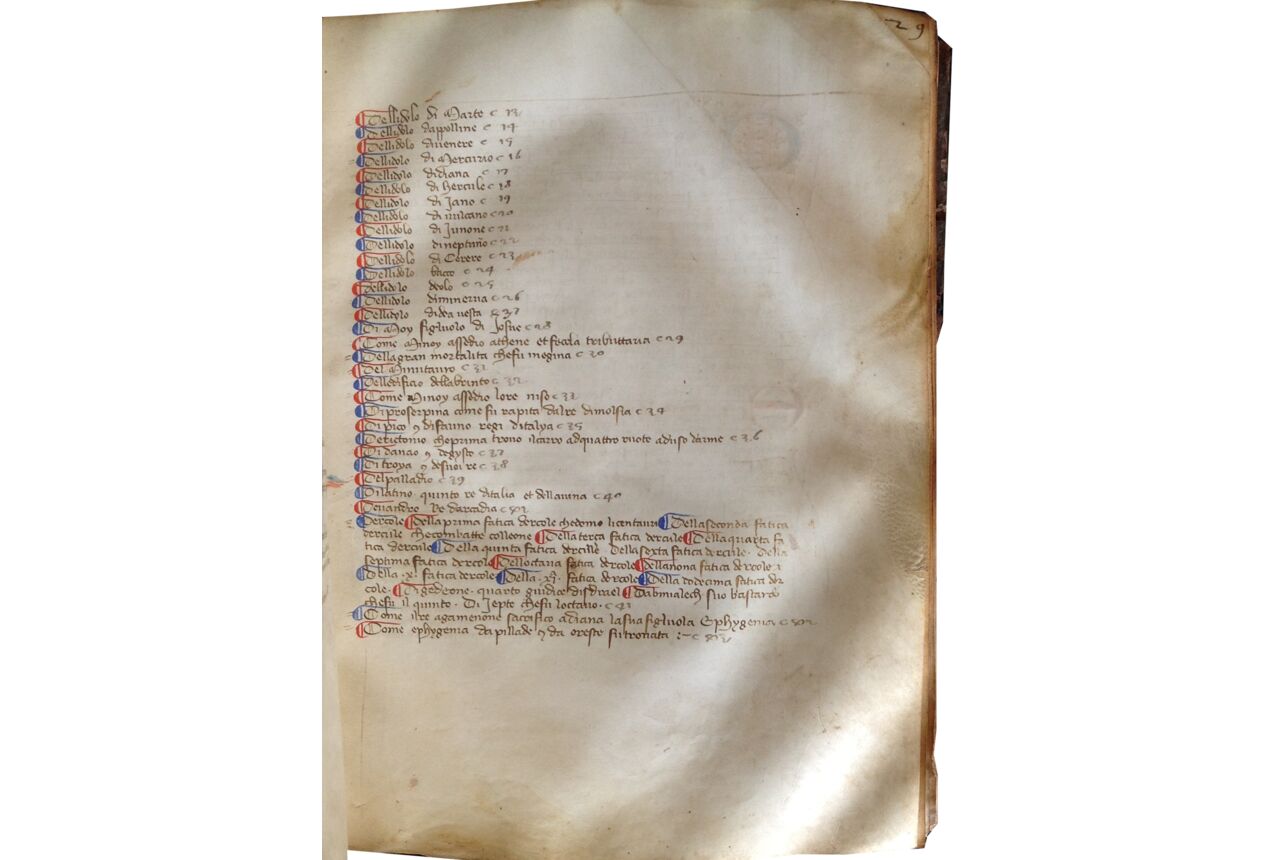 29
Dellidolo di Marte c 13
Dellidolo dappolline c 14
Dellidolo diuenere c 15
Dellidolo di Mercurio c 16
Dellidolo didiana c 17
Dellidolo di hercule c 18
Dellidolo di Jano c 19
Dellidolo di uulcano c 20
Dellidolo di Junone c 21
Dellidolo dineptūo c 22
Dellidolo di Cerere c 23
Dellidolo bacco c 24
Dellidolo deolo c 25
Dellidolo diminerua c 26
Dellidolo didea uesta c 27
Di Moy figluolo di Josue c 28
Come Minoy assedio athene et fecela tributtaria c 29
Della gran mortalita chefu inegina c 30
Del Minutauro c 31
Delledificio dellabrinto c 32
Come Minoy assedio lore niso c 33
Di proserpina come fu rapita dalre dimolsia c 34
Di pico et difauno regi ditalya c 35
Derictonio cheprima trouo ilcarro adquattro ruote aduso darme c 36
Di danao et degysto c 37
Di troya et desuoi re c 38
Del palladio c 39
Di latino quinto re ditalia et dellauina c 40
Deuandro Re darcadia c
Dercole Della prima fatica dercole chedomo licentauri Della seconda fatica
dercule checombatte colleone Della terca fatica dercule Della quarta fa
tica dercule Della quinta fatica dercule Della sexta fatica dercule. Della
septima fatica dercole Delloctaua fatica dercole Dellanona fatica dercole
Della .x. fatica dercole Della .xj. fatica dercole Della dodecima fatica der
cole. Di gedeone. quarto giudice disdrael Dabmialech suo bastardo
chefu il quinto. Di Jepte chefu loctauo. c 41
Come ilre agamenone sacrifico adiana lasua figluola Ephygenia c
Come ephygenia da pillade et da oreste fu trouata :~ c